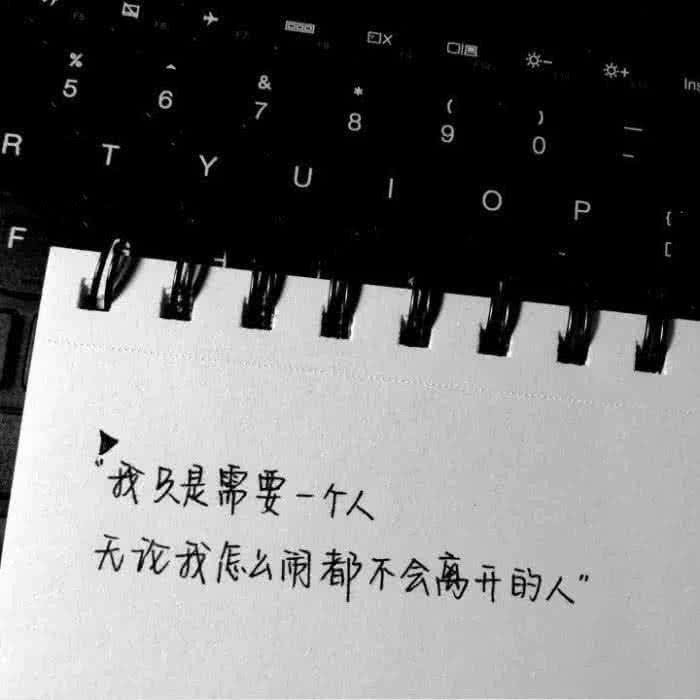 F5 F6 F7 F8
% ^ & * ( ) —
5 6 7 8 9 0 -
Ins
R T Y U I O P {
[
F
"我只是需要一个人
无论我怎么闹都不会离开的人"